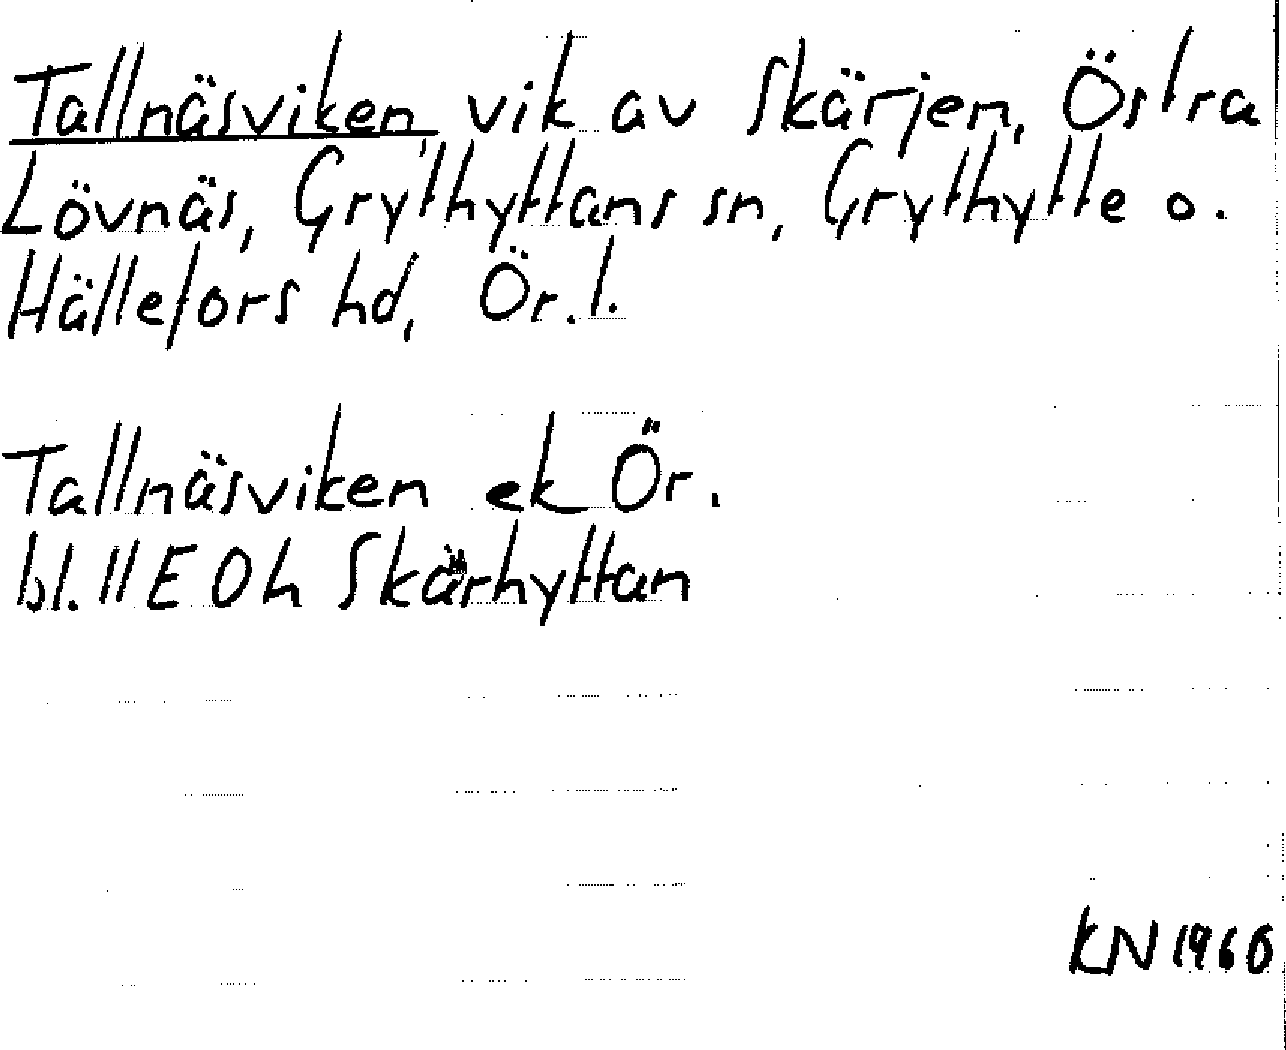 Tallnäsviken, vik av Skärjen, Östra
Lövnäs, Grythyttans sn, Grythytte o.
Hällefors hd, Ör. l.
Tallnäsviken ek Ör.
bl. 11 E 0 h Skärhyttan
KN 1960